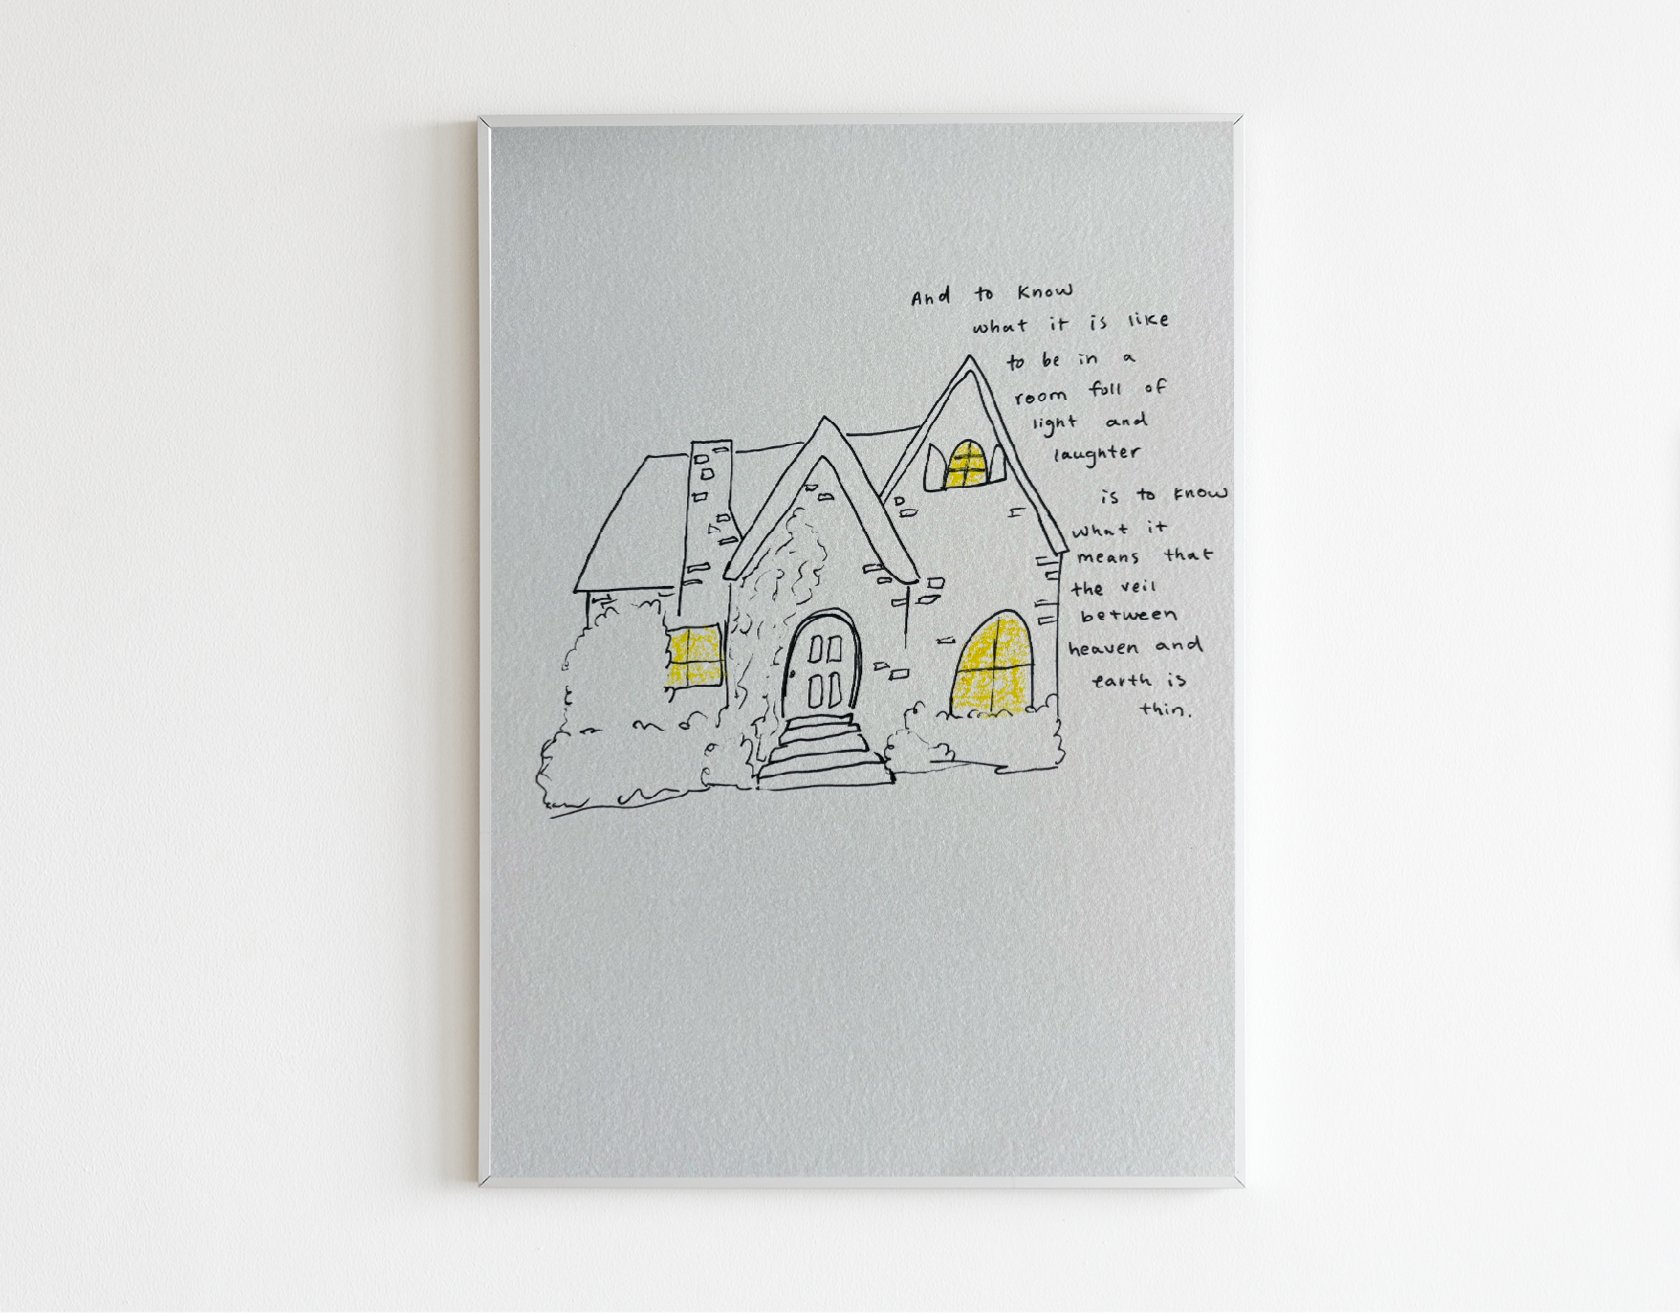 And to know
what it is like
to be in a
room full of
light and
laughter
is to know
what it
means that
the veil
between
heaven and
earth is
thin.